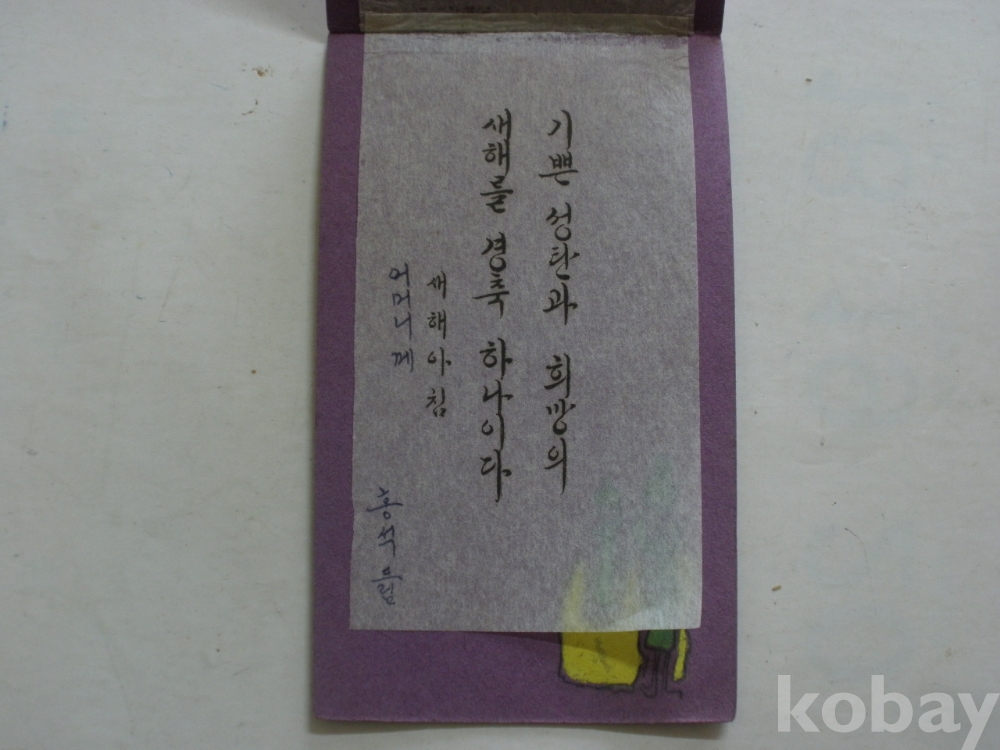 기쁜 성탄과 희망의
새해를 경축 하나이다
새해아침
어머니께
홍석 드림
kobay